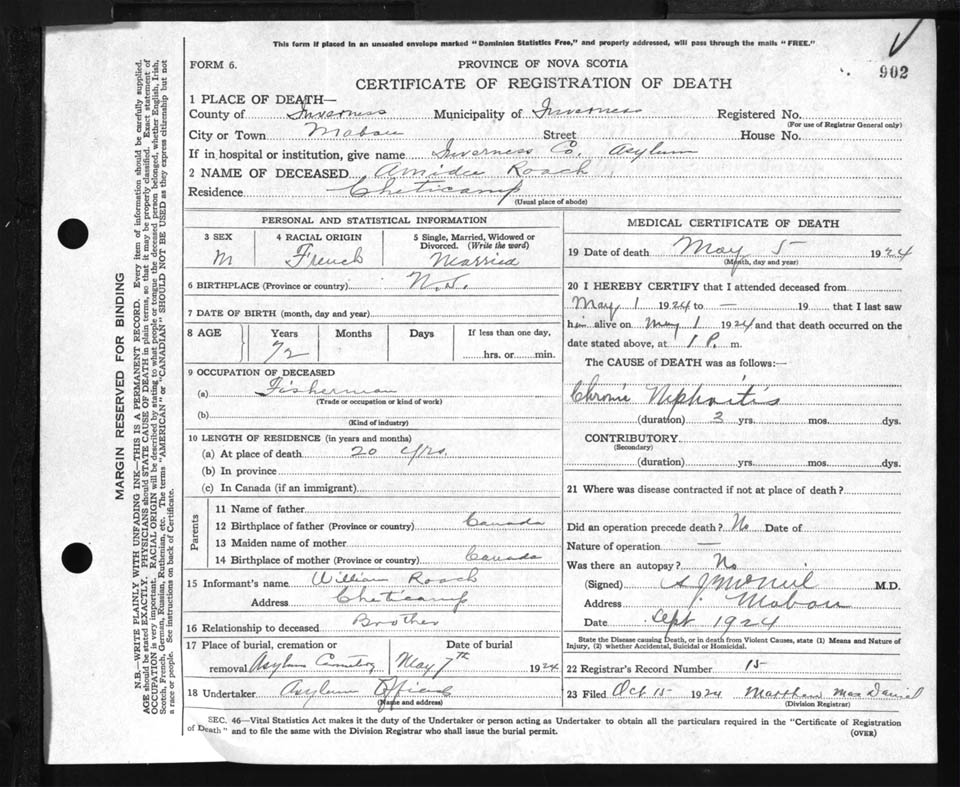 This form if placed in an unsealed envelope marked "Dominion Statistics Free," and properly addressed, will pass through the mails "FREE."
902
FORM 6.
PROVINCE OF NOVA SCOTIA
CERTIFICATE OF REGISTRATION OF DEATH
1 PLACE OF DEATH—
County of Inverness Municipality of Inverness Registered No.
(For use of Registrar General only)
City or Town Mabou Street House No.
If in hospital or institution, give name Inverness Co. Asylum
2 NAME OF DECEASED Amidee Roach
Residence Cheticamp
(Usual place of abode)
PERSONAL AND STATISTICAL INFORMATION
3 SEX 4 RACIAL ORIGIN 5 Single, Married, Widowed or Divorced. (Write the word)
M French Married
6 BIRTHPLACE (Province or country) N.S.
7 DATE OF BIRTH (month, day and year)
8 AGE Years Months Days If less than one day,
72 hrs. or min.
9 OCCUPATION OF DECEASED
(a) Fisherman
(Trade or occupation or kind of work)
(b)
(Kind of industry)
10 LENGTH OF RESIDENCE (in years and months)
(a) At place of death 20 yrs.
(b) In province
(c) In Canada (if an immigrant)
Parents
11 Name of father
12 Birthplace of father (Province or country) Canada
13 Maiden name of mother
14 Birthplace of mother (Province or country) Canada
15 Informant's name William Roach
Address Cheticamp
16 Relationship to deceased Brother
17 Place of burial, cremation or Date of burial
removal Asylum Cemetery May 7th 1924
18 Undertaker Asylum
(Name and address)
MEDICAL CERTIFICATE OF DEATH
19 Date of death May 5 1924
(Month, day and year)
20 I HEREBY CERTIFY that I attended deceased from
May 1 1924 to — 19 that I last saw
him alive on May 1 1924 and that death occurred on
date stated above, at 1 P. m.
The CAUSE of DEATH was as follows:—
Chronic Nephritis
(duration) 3 yrs. mos. dys.
CONTRIBUTORY
(Secondary)
(duration) yrs. mos. dys.
21 Where was disease contracted if not at place of death?
Did an operation precede death? No Date of
Nature of operation —
Was there an autopsy? No
(Signed) A J McNeil M.D.
Address Mabou
Date Sept 1924
State the Disease causing Death, or in death from Violent Causes, state (1) Means and Nature of
Injury, (2) whether Accidental, Suicidal or Homicidal.
22 Registrar's Record Number 15
23 Filed Oct 15 1924 Matthew MacDaniel
(Division Registrar)
SEC. 46—Vital Statistics Act makes it the duty of the Undertaker or person acting as Undertaker to obtain all the particulars required in the "Certificate of Registration
of Death" and to file the same with the Division Registrar who shall issue the burial permit.
(OVER)
MARGIN RESERVED FOR BINDING
N.B.—WRITE PLAINLY WITH UNFADING INK—THIS IS A PERMANENT RECORD. Every item of information should be carefully supplied.
AGE should be stated EXACTLY. PHYSICIANS should STATE CAUSE OF DEATH in plain terms, so that it may be properly classified. Exact statement of
OCCUPATION is very important. RACIAL ORIGIN will be described by stating to what people or tongue the deceased person belonged, whether English, Irish,
Scotch, French, German, Russian, Ruthenian, etc. The terms "AMERICAN" or "CANADIAN" SHOULD NOT BE USED as they express citizenship but not
a race or people. See instructions on back of Certificate.